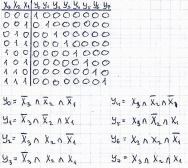 X₃ X₂ X₁ Y₀ Y₁ Y₂ Y₃ Y₄ Y₅ Y₆ Y₇
0 0 0 1 0 0 0 0 0 0 0
0 0 1 0 1 0 0 0 0 0 0
0 1 0 0 0 1 0 0 0 0 0
0 1 1 0 0 0 1 0 0 0 0
1 0 0 0 0 0 0 1 0 0 0
1 0 1 0 0 0 0 0 1 0 0
1 1 0 0 0 0 0 0 0 1 0
1 1 1 0 0 0 0 0 0 0 1
Y₀ = X̄₃ ∧ X̄₂ ∧ X̄₁
Y₁ = X̄₃ ∧ X̄₂ ∧ X₁
Y₂ = X̄₃ ∧ X₂ ∧ X̄₁
Y₃ = X̄₃ ∧ X₂ ∧ X₁
Y₄ = X₃ ∧ X̄₂ ∧ X̄₁
Y₅ = X₃ ∧ X̄₂ ∧ X₁
Y₆ = X₃ ∧ X₂ ∧ X̄₁
Y₇ = X₃ ∧ X₂ ∧ X₁